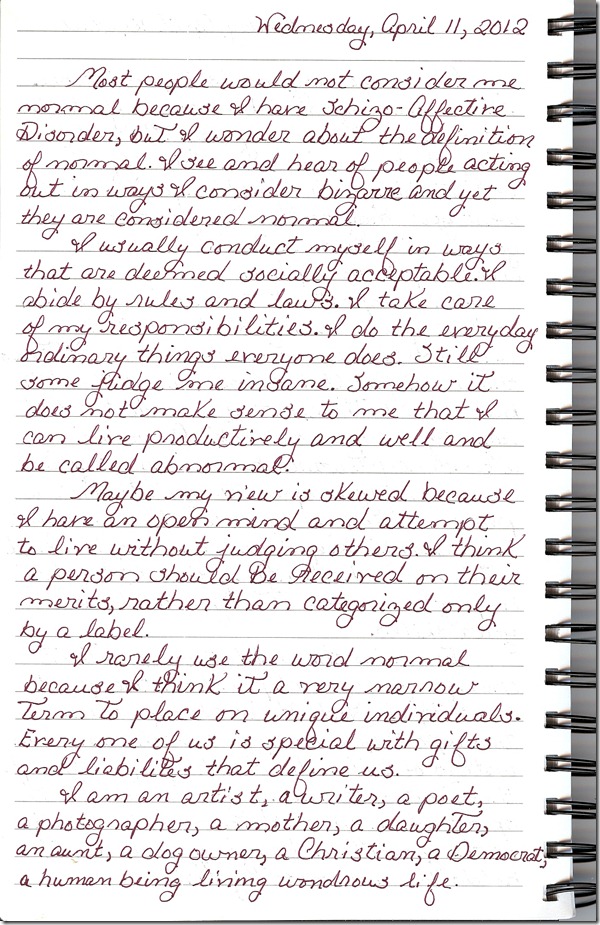 Wednesday, April 11, 2012
Most people would not consider me
normal because I have Schizo-Affective
Disorder, but I wonder about the definition
of normal. I see and hear of people acting
out in ways I consider bizarre and yet
they are considered normal.
I usually conduct myself in ways
that are deemed socially acceptable. I
abide by rules and laws. I take care
of my responsibilities. I do the everyday
ordinary things everyone does. Still
some judge me insane. Somehow it
does not make sense to me that I
can live productively and well and
be called abnormal.
Maybe my view is skewed because
I have an open mind and attempt
to live without judging others. I think
a person should Be Received on their
merits, rather than categorized only
by a label.
I rarely use the word normal
because I think it a very narrow
Term To place on unique individuals.
Every one of us is special with gifts
and liabilites that define us.
I am an artist, a writer, a poet,
a photographer, a mother, a daughter,
an aunt, a dog owner, a Christian, a Democrat,
a human being living wondrous life.